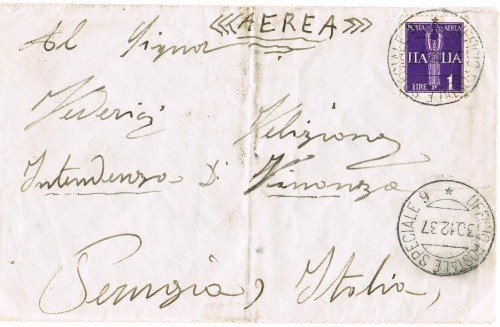 <<<AEREA>>>
POSTA AEREA
ITALIA
LIRE 1
Al Signor
Federici Melizione
Intendenza Di Finanza
Perugia, Italia,
UFFICIO POSTALE SPECIALE 9 *
30.12.37